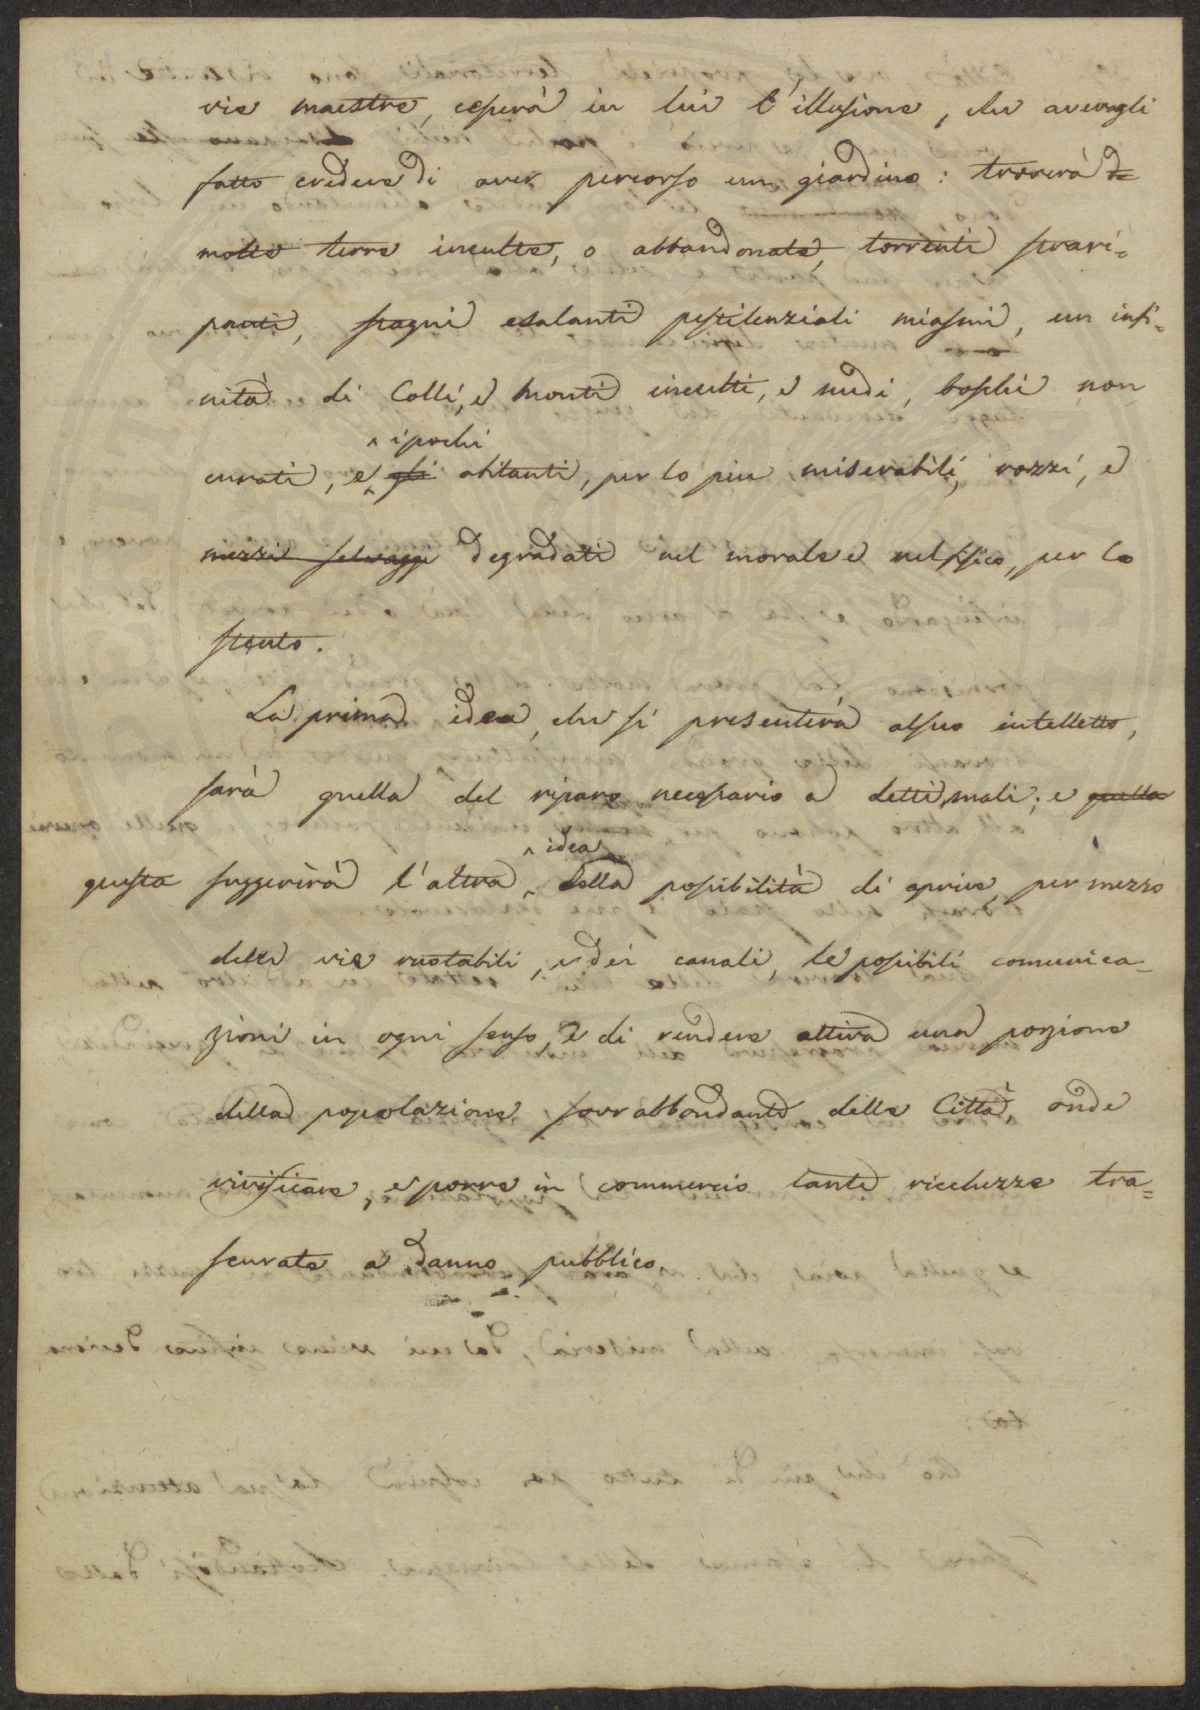 vie maestre, cesserà in lui l'illusione, che avevagli
fatto credere di aver percorso un giardino: troverà da
molte terre inculte, o abbandonate, torrenti strari=
panti, stagni esalanti pestilenziali miasmi, un infi=
nità di Colli, e monti incolti, e nudi, boschi non
i pochi
curati, e gli abitanti, per lo più miserabili, rozzi, e
mezzi selvaggi degradati nel morale e nel fisico, per lo
stento.
La prima idea, che si presenterà al suo intelletto,
sarà quella del riparo necessario a detti mali; e quella
idea
questa suggerirà l'altra della possibilità di aprire, per mezzo
delle vie ruotabili, e dei canali, le possibili comunica=
zioni in ogni senso, e di rendere attiva una porzione
della popolazione sovrabbondante delle Città, onde
vivificare, e porre in commercio tante ricchezze tra=
scurate a danno pubblico.